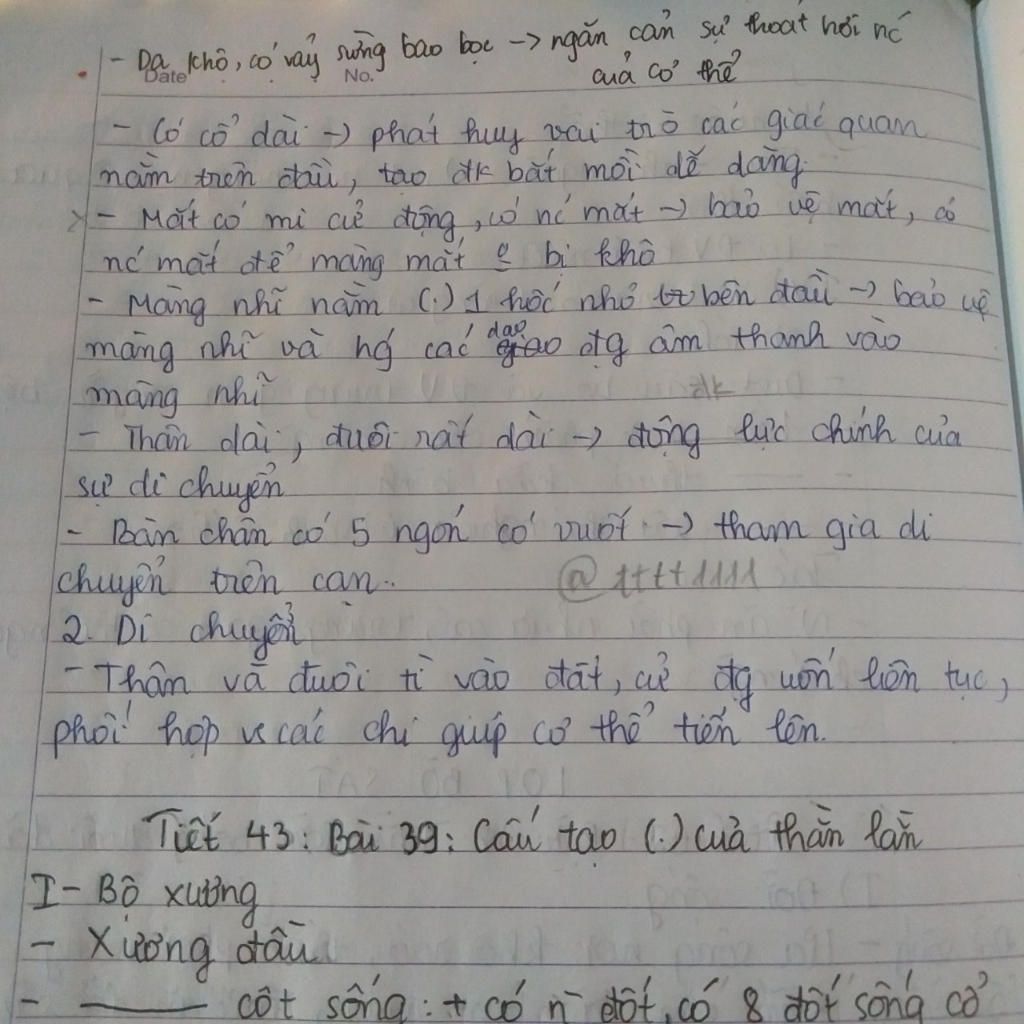 - Da khô, có vảy sừng bao bọc → ngăn cản sự thoát hơi nc
Date No.
của cơ thể
- Có cổ dài → phát huy vai trò các giác quan
nằm trên đầu, tạo đk bắt mồi dễ dàng
- Mắt có mi cử động, có nc mắt → bảo vệ mắt, có
nc mắt để màng mắt bị khô
- Màng nhĩ nằm (.) 1 hốc nhỏ bên đầu → bảo vệ
màng nhĩ và hg các dao đg âm thanh vào
màng nhĩ
đk
- Thân dài, đuôi rất dài → động lực chính của
sự di chuyển
- Bàn chân có 5 ngón có vuốt → tham gia di
chuyển trên cạn..
@ tttt1111
2. Di chuyển
- Thân và đuôi tì vào đất, cử đg uốn liên tục,
phối hợp vs các chi giúp cơ thể tiến lên.
Tiết 43: Bài 39: Cấu tạo (.) của thằn lằn
I - Bộ xương
- Xương đầu
- —— cột sống: + có n̄ đốt, có 8 đốt sống cổ